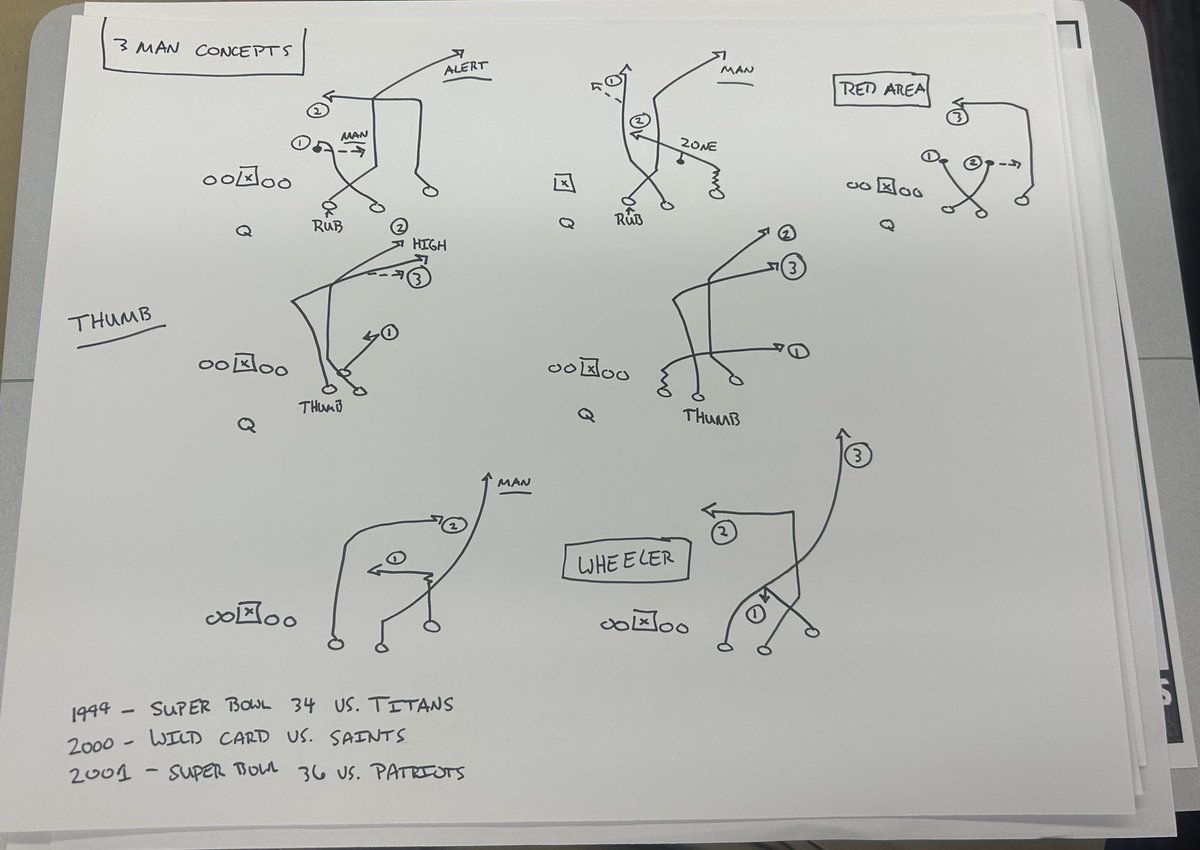 3 MAN CONCEPTS
ALERT
2
1
MAN
X
RUB
Q
1
MAN
2
ZONE
X
RUB
Q
RED AREA
3
1
2
X
Q
THUMB
2
HIGH
3
1
X
THUMB
Q
2
3
1
X
THUMB
Q
MAN
2
1
X
WHEELER
3
2
1
X
1999 - SUPER BOWL 34 VS. TITANS
2000 - WILD CARD VS. SAINTS
2001 - SUPER BOWL 36 VS. PATRIOTS